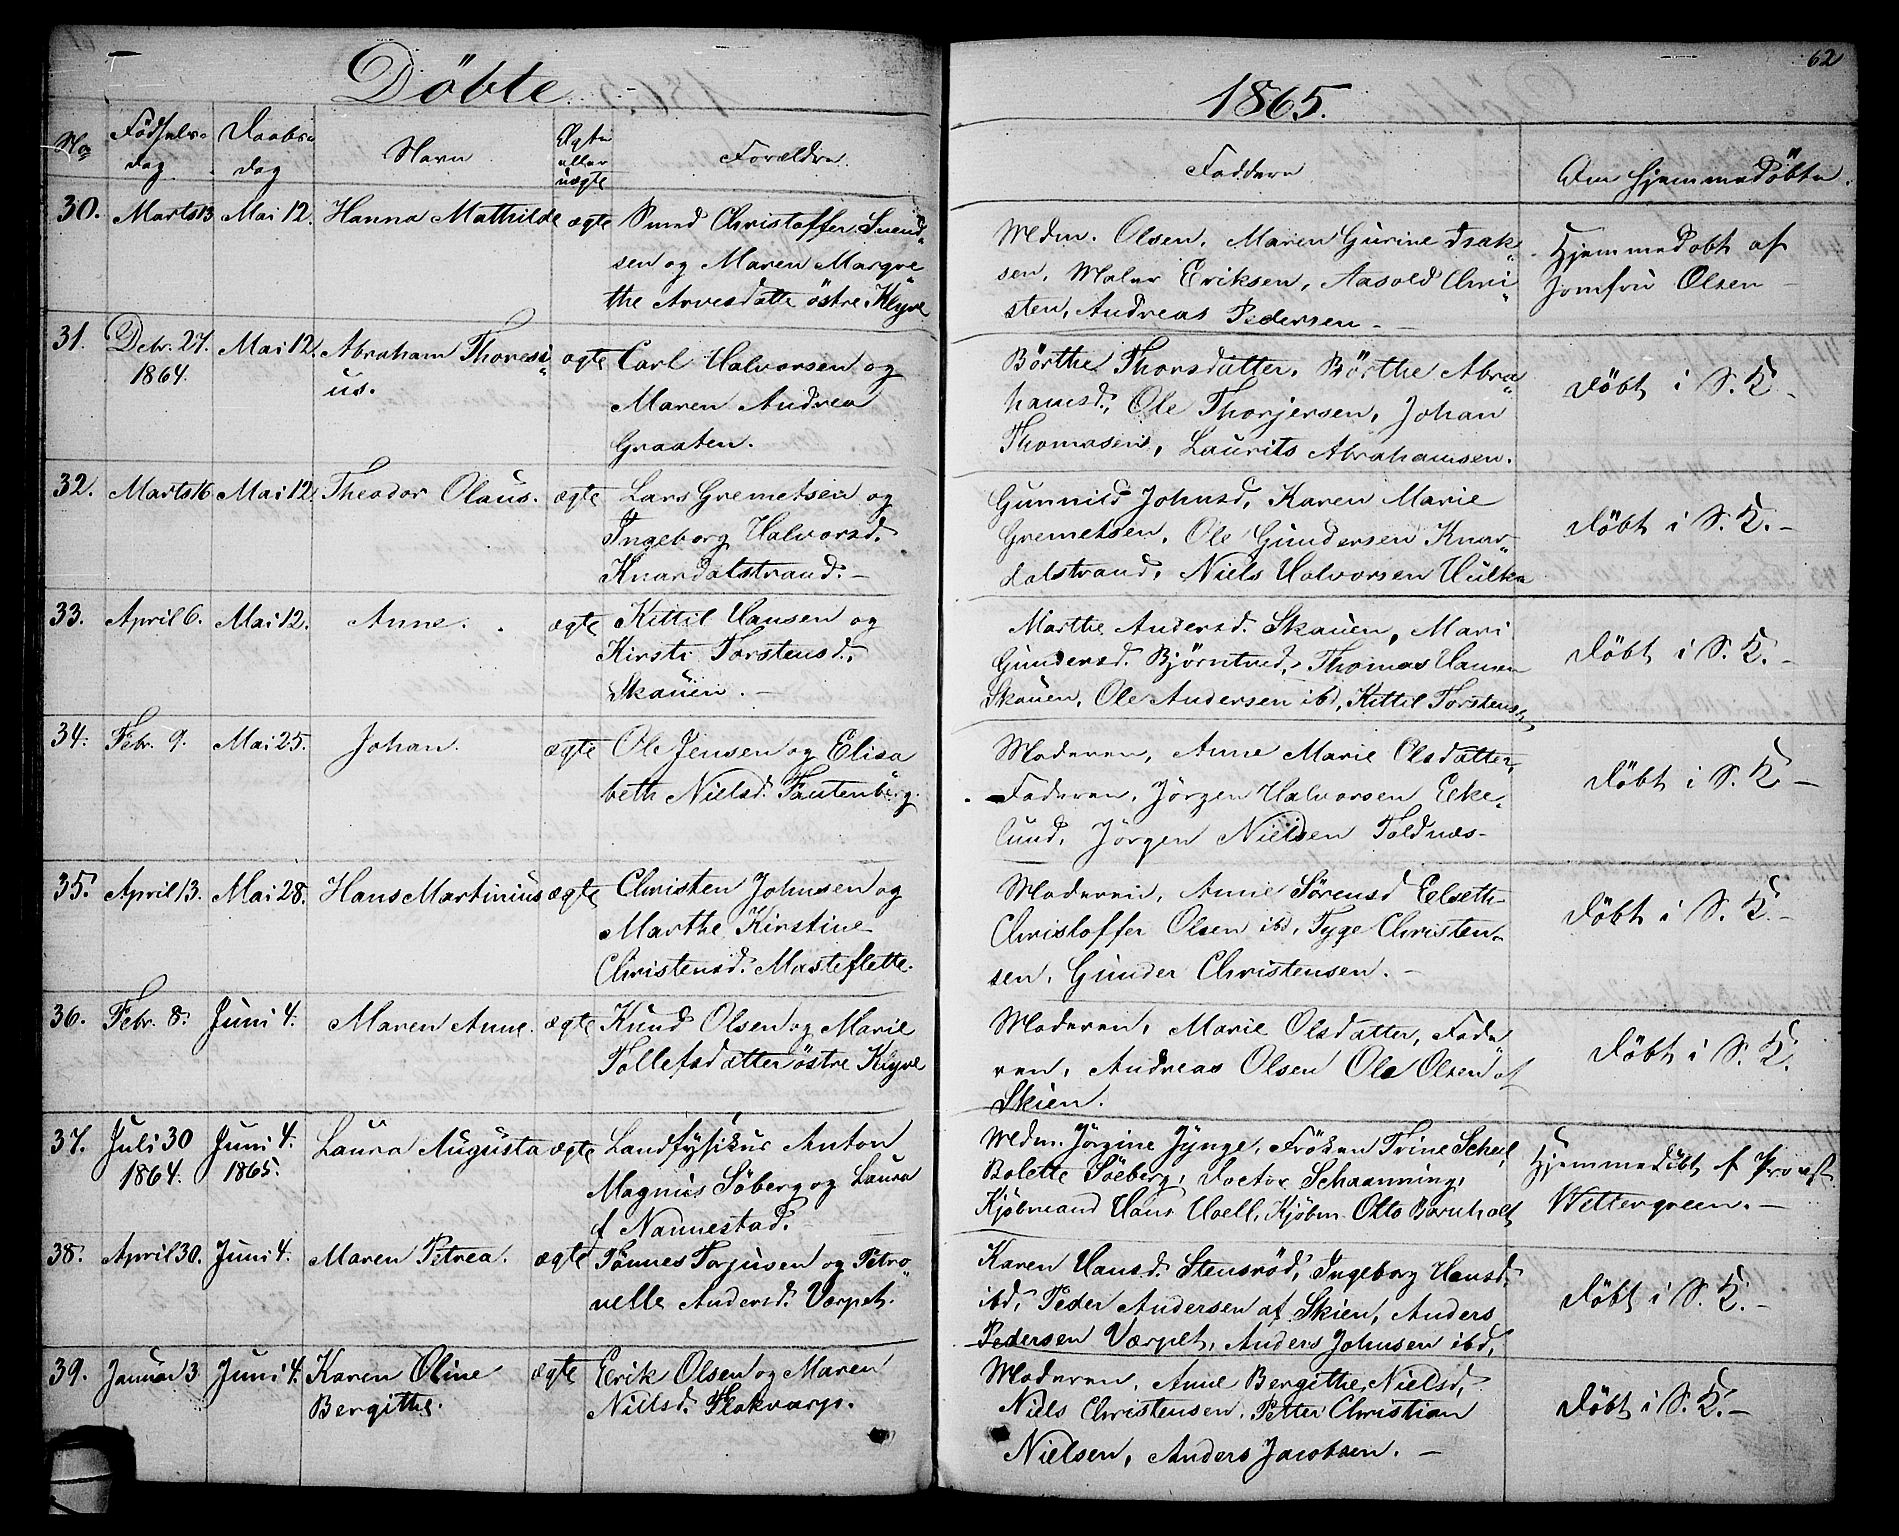 62
Döbte.
1865.
No
Födsels-
dag
Daabs-
dag
Navn.
Ægte
eller
uægte
Forældre.
Faddere
Om hjemmedöbte.
30. Marts 13 Mai 12. Hanna Mathilde ægte
Svend Christoffer Svend-
sen og Maren Margre-
the Arvesdatte östre Klyve
Mdm. Olsen, Maren Gurine Isak-
sen, Maler Eriksen, Aasold Chri-
sten, Andreas Pedersen. —
Hjemmedobt af
Jomfru Olsen —
31. Debr. 27. Mai 12. Abraham Thoresi- ægte
1864.
us.
Carl Halvorsen og
Maren Andrea
Graaten.
Börthe Thorsdatter, Börthe Abra-
hamsd., Ole Thorjersen, Johan
Thomasen, Laurits Abrahamsen.
Döbt i S. K. —
32. Marts 16 Mai 12. Theodor Olaus. ægte
Lars Gremetsen og
Ingeborg Halvorsd.
Knardalstrand. —
Gunnild Johnsd, Karen Marie
Gremetsen, Ole Gundersen Knar-
dalstrand, Niels Halvorsen Hulka
Döbt i S. K. —
33. April 6. Mai 12. Anne. ægte
Kittil Hansen og
Kirsti Torstensd.
Skauen. —
Marthe Andersd. Skauen, Mari
Gundersd. Björntved, Thomas Hansen
Skauen, Ole Andersen ibd, Kittil Torstens.
Döbt i S. K. —
34. Febr. 9. Mai 25. Johan. ægte
Ole Jensen og Elisa
beth Nielsd. Tautenberg.
Moderen, Anne Marie Olsdatter,
Faderen, Jörgen Halvorsen Eeke-
lund, Jörgen Nielsen Foldnæs—
Döbt i S. K —
35. April 13. Mai 28. Hans Martinius ægte
Christen Johnsen og
Marthe Kirstine
Christensd. Masteflette.
Moderen, Anne Sörensd Eelseth
Christoffer Olsen ibd, Tyge Christen-
sen, Gunder Christensen. —
Döbt i S. K. —
36. Febr. 8. Juni 4. Maren Anne. ægte
Knud Olsen og Marie
Tollefsdatter östre Klyve
Moderen, Marie Olsdatter, Fade
ren, Andreas Olsen Ole Olsen af
Skien.
Döbt i S. K.
37. Juli 30 Juni 4. Laura Augusta ægte
1864. 1865.
Landfysikus Anton
Magnus Söberg og Laura
f Nannestad.
Mdm. Jörgine Jynge, Fröken Trine Scheel,
Bolette Söeberg, Doctor Schaanning,
Kjöbmand Hans Hoell, Kjöbm. Otto Bornholt
Hjemmedöbt af Provst
Wettergreen. —
38. April 30. Juni 4. Maren Petrea. ægte
Tönnes Torjusen og Petro-
nelle Andersd. Værpet.
Karen Hansd. Stensröd, Ingeborg Hansd.
ibd, Peder Andersen af Skien, Anders
Pedersen Værpet, Anders Johnsen ibd,
Döbt i S. K. —
39. Januar 3 Juni 4. Karen Oline ægte
Bergitthe.
Erik Olsen og Maren
Nielsd. Flakvarp.
Moderen, Anne Bergithe Nielsd,
Niels Christensen, Petter Christian
Nielsen, Anders Jacobsen. —
Döbt i S. K. —